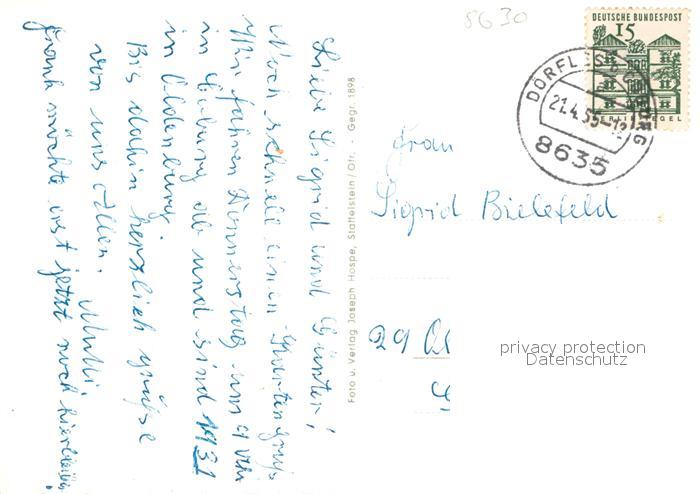 Liebe Sigrid und Günter!
Noch schnell einen Kartengruß
Wir fahren Donnerstag um 9 Uhr
in Coburg ab und sind 1931
in Oldenburg
Bis dahin herzlich grüße
von uns Allen. Mutti.
Frank möchte erst jetzt noch hierbleiben
Foto u. Verlag Joseph Hospe, Staffelstein/Ofr. - Gegr. 1898
8630
DEUTSCHE BUNDESPOST
15
BERLIN TEGEL
21.4.
8635
Frau
Sigrid Bielefeld
29 Ol
privacy protection
Datenschutz